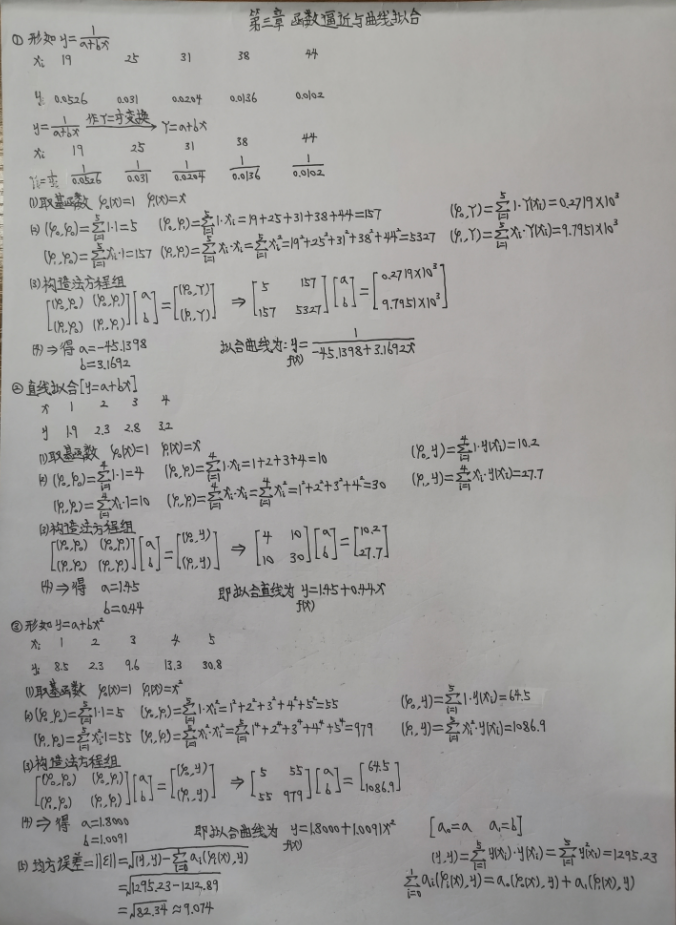 第三章 函数逼近与曲线拟合
① 形如 y=1/(a+bx)
xᵢ 19 25 31 38 44
yᵢ 0.0526 0.031 0.0204 0.0136 0.0102
y=1/(a+bx) 作Y=1/y变换→ Y=a+bx
xᵢ 19 25 31 38 44
Yᵢ=1/yᵢ 1/0.0526 1/0.031 1/0.0204 1/0.0136 1/0.0102
(1)取基函数 φ₀(x)=1 φ₁(x)=x
(2) (φ₀,φ₀)=∑ᵢ₌₁⁵1·1=5 (φ₀,φ₁)=∑ᵢ₌₁⁵1·xᵢ=19+25+31+38+44=157 (φ₀,Y)=∑ᵢ₌₁⁵1·Y(xᵢ)=0.2719×10³
(φ₁,φ₀)=∑ᵢ₌₁⁵xᵢ·1=157 (φ₁,φ₁)=∑ᵢ₌₁⁵xᵢ·xᵢ=∑ᵢ₌₁⁵xᵢ²=19²+25²+31²+38²+44²=5327 (φ₁,Y)=∑ᵢ₌₁⁵xᵢ·Y(xᵢ)=9.7951×10³
(3)构造法方程组
[(φ₀,φ₀) (φ₀,φ₁); (φ₁,φ₀) (φ₁,φ₁)][a; b]=[(φ₀,Y); (φ₁,Y)] ⇒ [5 157; 157 5327][a; b]=[0.2719×10³; 9.7951×10³]
(4) ⇒得 a=-45.1398 拟合曲线为: y=1/(-45.1398+3.1692x)
b=3.1692 f(x)
② 直线拟合[y=a+bx]
x 1 2 3 4
y 1.9 2.3 2.8 3.2
(1)取基函数 φ₀(x)=1 φ₁(x)=x
(2) (φ₀,φ₀)=∑ᵢ₌₁⁴1·1=4 (φ₀,φ₁)=∑ᵢ₌₁⁴1·xᵢ=1+2+3+4=10 (φ₀,y)=∑ᵢ₌₁⁴1·y(xᵢ)=10.2
(φ₁,φ₀)=∑ᵢ₌₁⁴xᵢ·1=10 (φ₁,φ₁)=∑ᵢ₌₁⁴xᵢ·xᵢ=∑ᵢ₌₁⁴xᵢ²=1²+2²+3²+4²=30 (φ₁,y)=∑ᵢ₌₁⁴xᵢ·y(xᵢ)=27.7
(3)构造法方程组
[(φ₀,φ₀) (φ₀,φ₁); (φ₁,φ₀) (φ₁,φ₁)][a; b]=[(φ₀,y); (φ₁,y)] ⇒ [4 10; 10 30][a; b]=[10.2; 27.7]
(4) ⇒得 a=1.45 即拟合直线为 y=1.45+0.44x
b=0.44 f(x)
③ 形如y=a+bx²
xᵢ 1 2 3 4 5
yᵢ 8.5 2.3 9.6 13.3 30.8
(1)取基函数 φ₀(x)=1 φ₁(x)=x²
(2) (φ₀,φ₀)=∑ᵢ₌₁⁵1·1=5 (φ₀,φ₁)=∑ᵢ₌₁⁵1·xᵢ²=1²+2²+3²+4²+5²=55 (φ₀,y)=∑ᵢ₌₁⁵1·y(xᵢ)=64.5
(φ₁,φ₀)=∑ᵢ₌₁⁵xᵢ²·1=55 (φ₁,φ₁)=∑ᵢ₌₁⁵xᵢ²·xᵢ²=∑ᵢ₌₁⁵1⁴+2⁴+3⁴+4⁴+5⁴=979 (φ₁,y)=∑ᵢ₌₁⁵xᵢ²·y(xᵢ)=1086.9
(3)构造法方程组
[(φ₀,φ₀) (φ₀,φ₁); (φ₁,φ₀) (φ₁,φ₁)][a; b]=[(φ₀,y); (φ₁,y)] ⇒ [5 55; 55 979][a; b]=[64.5; 1086.9]
(4) ⇒得 a=1.8000 即拟合曲线为 y=1.8000+1.0091x² [a₀=a a₁=b]
b=1.0091 f(x)
(5) 均方误差=||ε||=√((y,y)-∑ᵢ₌₀¹aᵢ(φᵢ(x),y)) (y,y)=∑ᵢ₌₁⁵y(xᵢ)·y(xᵢ)=∑ᵢ₌₁⁵y²(xᵢ)=1295.23
=√(1295.23-1212.89) ∑ᵢ₌₀¹aᵢ(φᵢ(x),y)=a₀(φ₀(x),y)+a₁(φ₁(x),y)
=√82.34≈9.074